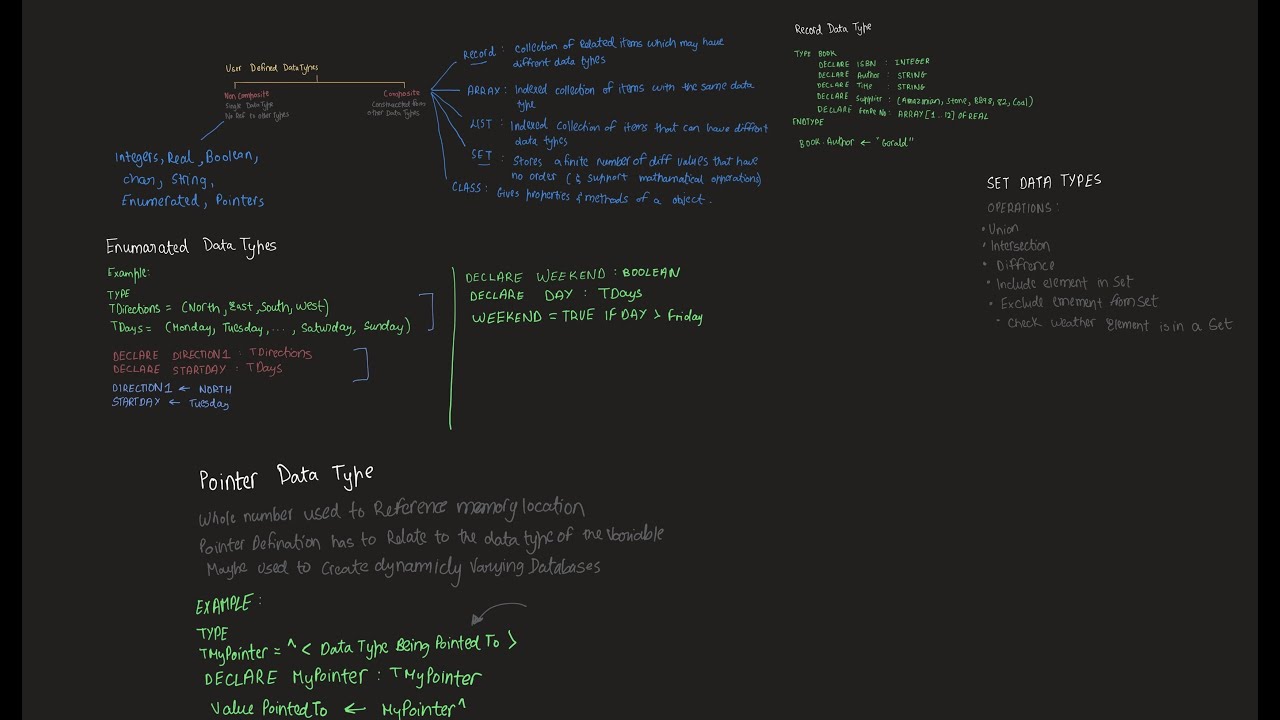 User Defined DataTypes
Non Composite
Single DataType
No Ref to other Types
Composite
Constructed from
other Data Types
Integers, Real, Boolean,
char, String,
Enumerated, Pointers
RECORD : Collection of Related items which may have
diffrent data types
ARRAY : Indexed collection of items with the same data
type
LIST : Indexed Collection of items that can have diffrent
data types
SET : Stores a finite number of diff values that have
no order (& support mathematical operations)
CLASS : Gives properties & methods of a object.
Record Data Type
TYPE BOOK
DECLARE ISBN : INTEGER
DECLARE Author : STRING
DECLARE Title : STRING
DECLARE Supplier : (Amazman, Stone, BB98, 82, Coal)
DECLARE No : ARRAY [1..12] OF REAL
ENDTYPE
BOOK.Author ← "Gorald"
SET DATA TYPES
OPERATIONS :
• Union
• Intersection
• Diffrence
• Include element in Set
• Exclude emement from set
• Check weather Element is in a Set
Enumarated Data Types
Example:
TYPE
TDirections = (North, East, South, West)
TDays = (Monday, Tuesday, ..., Saturday, Sunday)
DECLARE DIRECTION1 : TDirections
DECLARE STARTDAY : TDays
DIRECTION1 ← NORTH
STARTDAY ← Tuesday
DECLARE WEEKEND : BOOLEAN
DECLARE DAY : TDays
WEEKEND = TRUE IF DAY > Friday
Pointer Data Type
Whole number used to Reference memory location
Pointer Defination has to Relate to the data type of the Variable
Maybe used to Create dynamicly Varying Databases
EXAMPLE :
TYPE
TMyPointer = ^ < Data Type Being Pointed To >
DECLARE MyPointer : TMyPointer
Value Pointed To ← MyPointer^